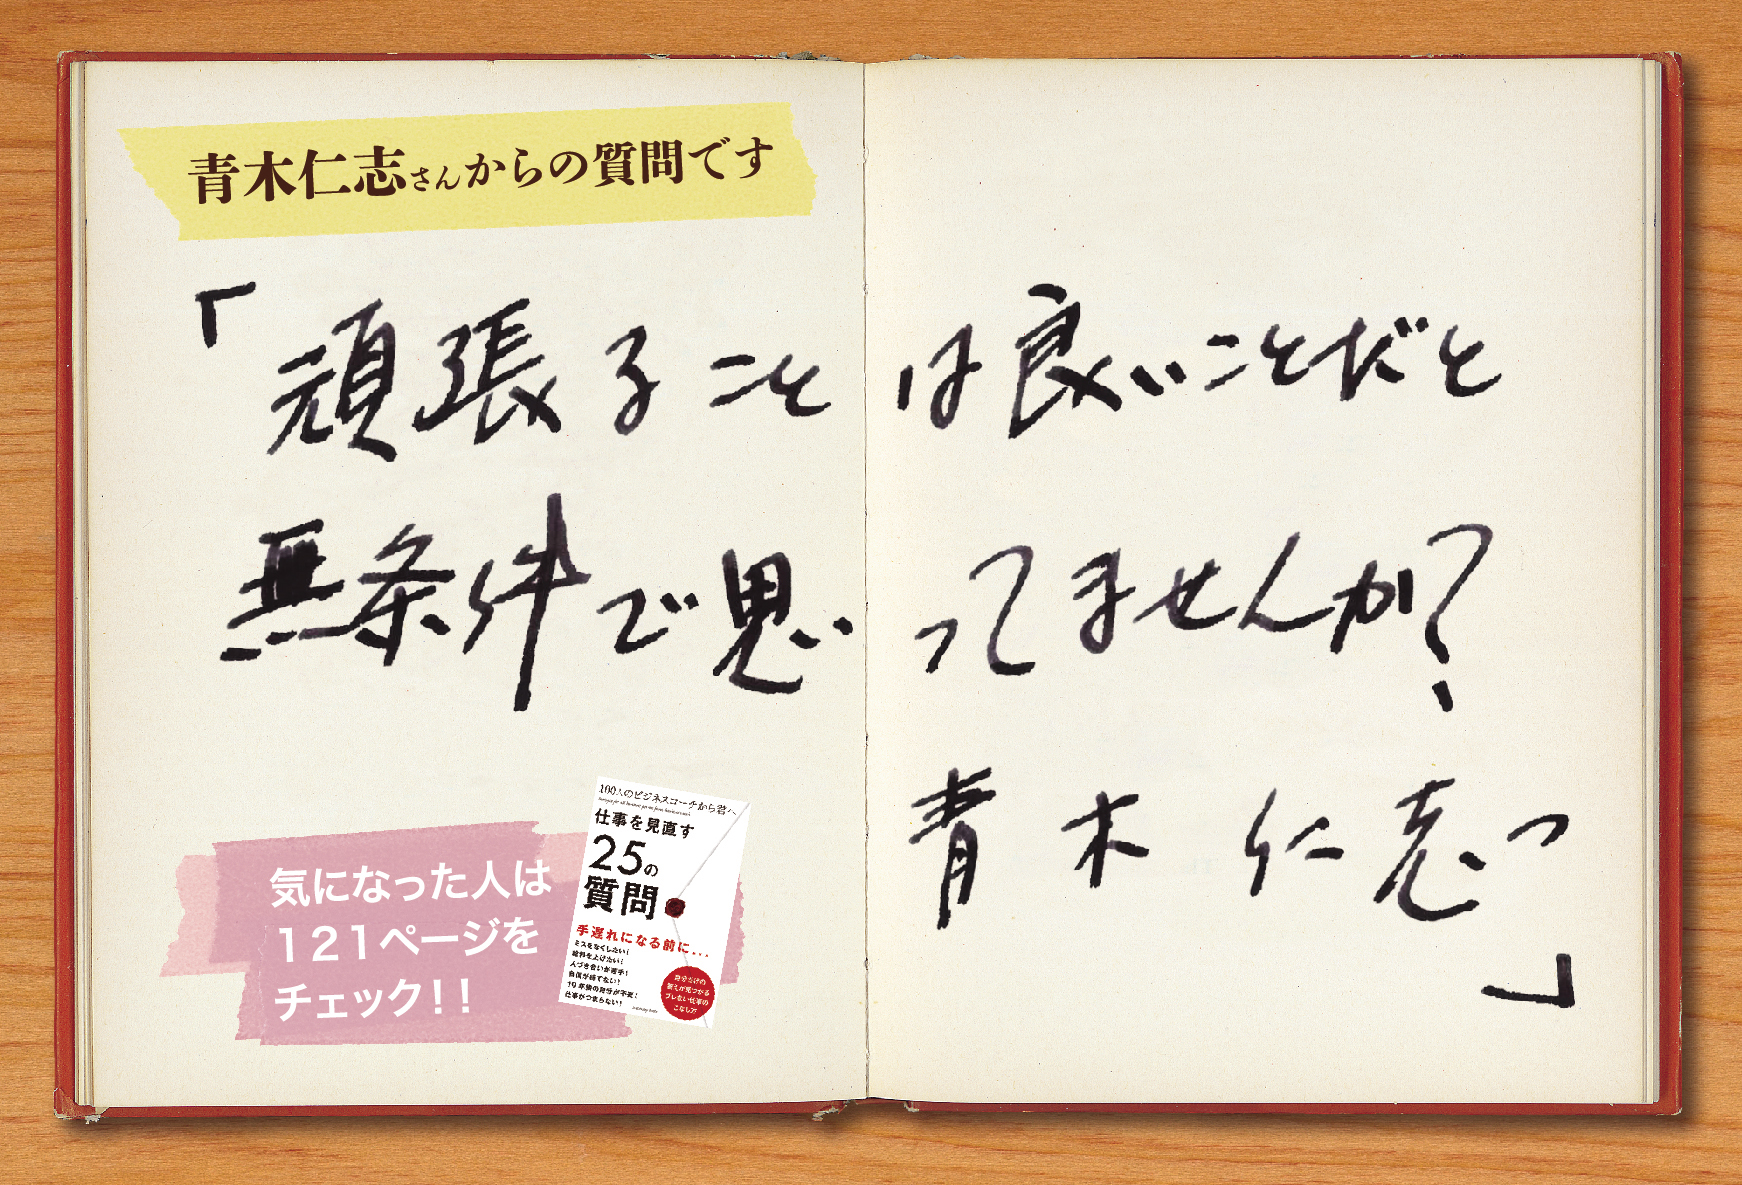 青木仁志さんからの質問です
「頑張ることは良いことだと
無条件で思ってませんか?
青木仁志」
気になった人は
121ページを
チェック!!
100人のビジネスコーチから君へ
仕事を見直す
25の
質問
手遅れになる前に...
ミスをなくしたい!
給料を上げたい!
人づき合いが苦手!
自信が持てない!
10年後の自分が不安!
仕事がつまらない!
自分だけの
答えが見つかる
ブレない仕事の
こなし方